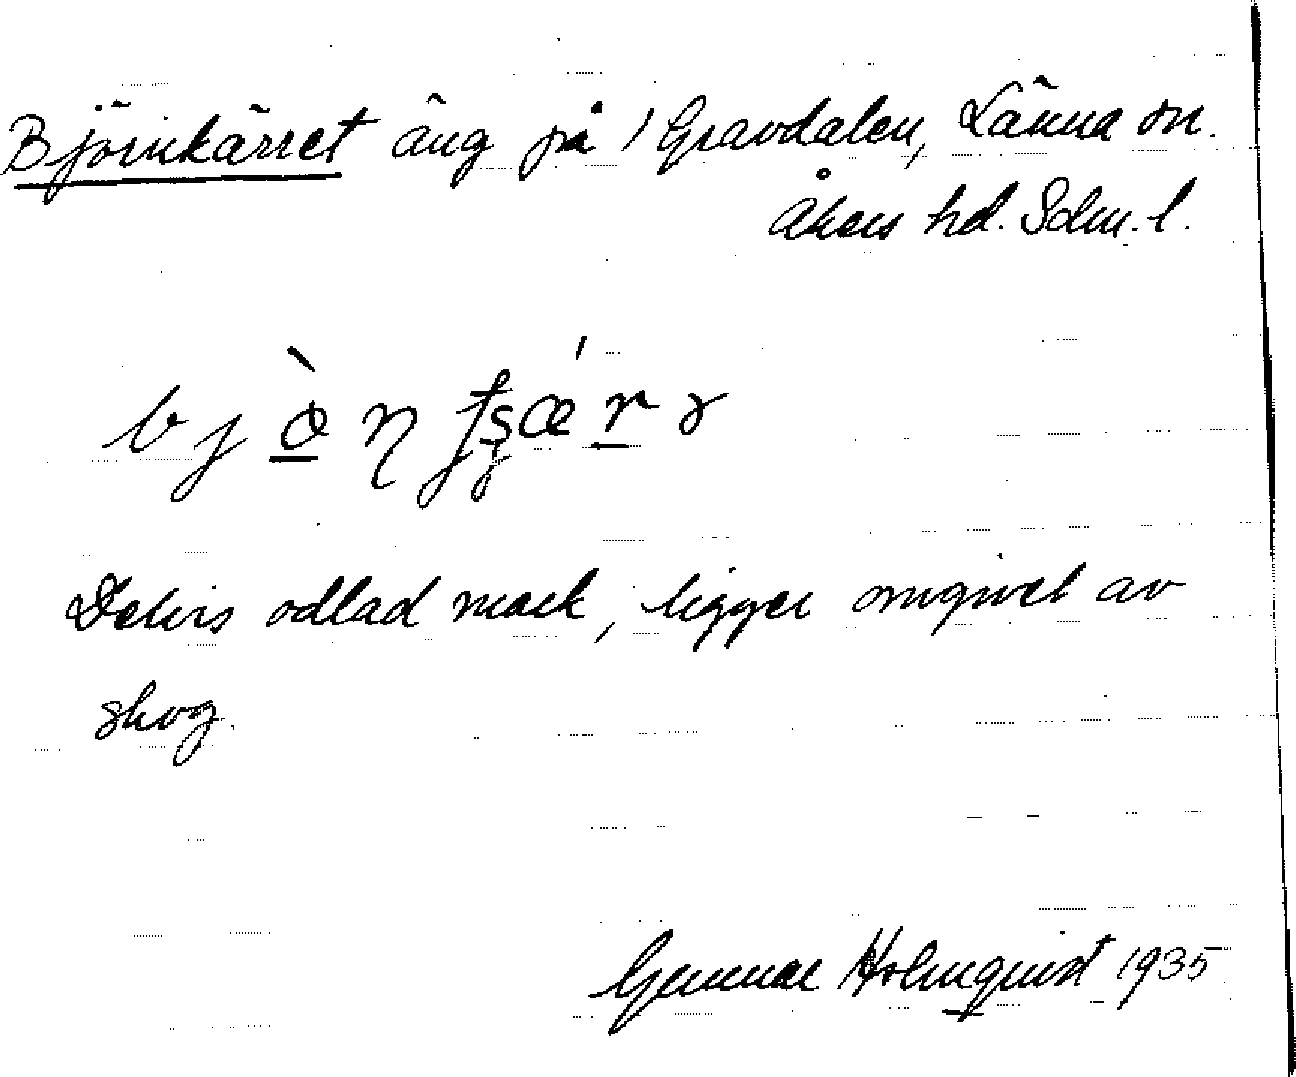 Björnkärret äng på Gravdalen, Länna sn.
Åkers hd. Sdm. l.
Delvis odlad mark, ligger omgivet av
skog.
Gunnar Holmquist 1935